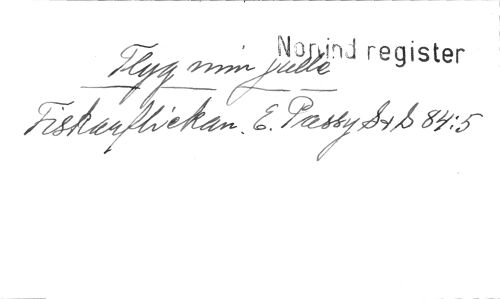 Nonind register
Flyg min julle
Fiskarflickan. E. Passy S+S 84:5